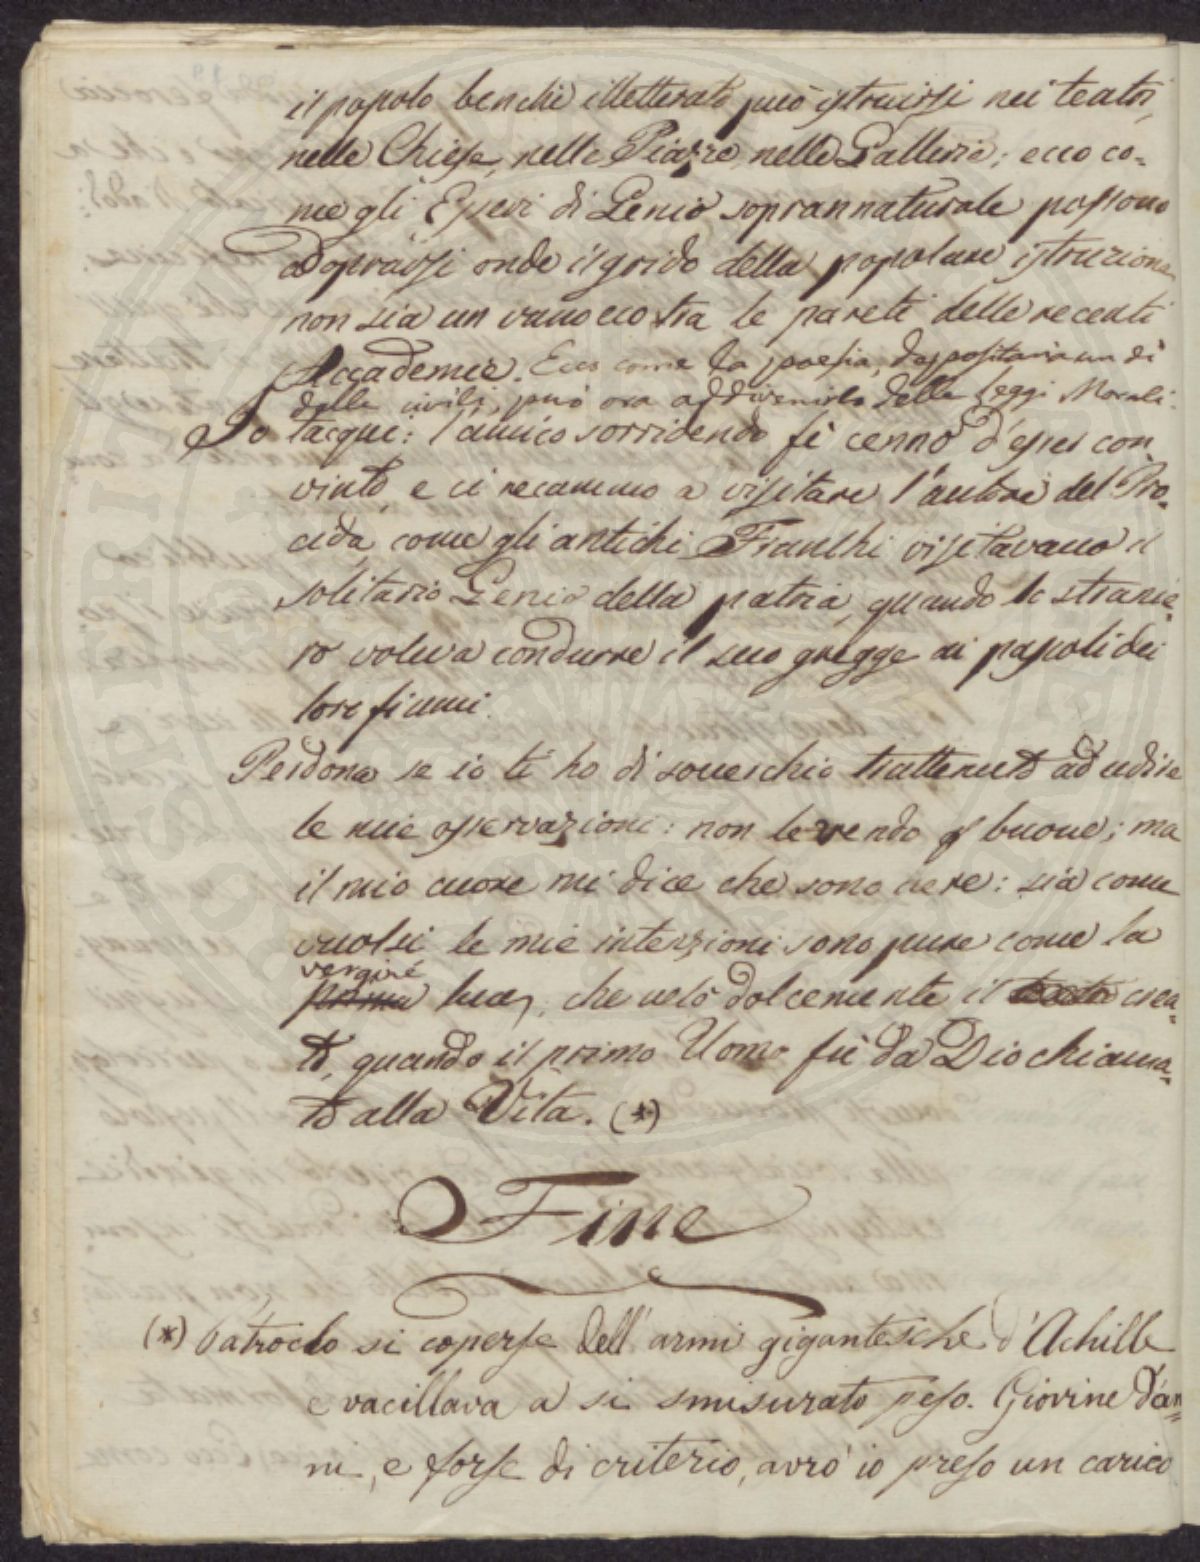 il popolo benchè illetterato può istruirsi nei teatri,
nelle Chiese, nelle Piazze, nelle Gallerie; ecco co=
me gli Esseri di Genio soprannaturale possono
adoprarsi onde il grido della popolare istruzione
non sia un vano eco tra le pareti delle recenti
Accademie. Ecco come la poesia, depositaria un dì
delle civili, può ora addivenirlo delle Leggi Morali.
Io tacqui: l'amico sorridendo fè cenno d'esser con=
vinto, e ci recammo a visitare l'autore del Pro=
cida, come gli antichi Franchi visitavano il
solitario Genio della patria, quando lo stranie=
ro voleva condurre il suo gregge ai pascoli dei
loro fiumi.
Perdona se io te ho di soverchio trattenuto ad udire
le mie osservazioni: non le vendo p buone; ma
il mio cuore mi dice che sono vere: sia come
vuolsi le mie intenzioni sono pure come la
vergine
prima luce, che velò dolcemente il crea=
to, quando il primo Uomo fu da Dio chiama=
to alla Vita. (*)
Fine
(*) Patroclo si coperse dell' armi gigantesche d'Achille
e vacillava a si smisurato peso. Giovine d'an=
ni, e forse di criterio, avrò io preso un carico